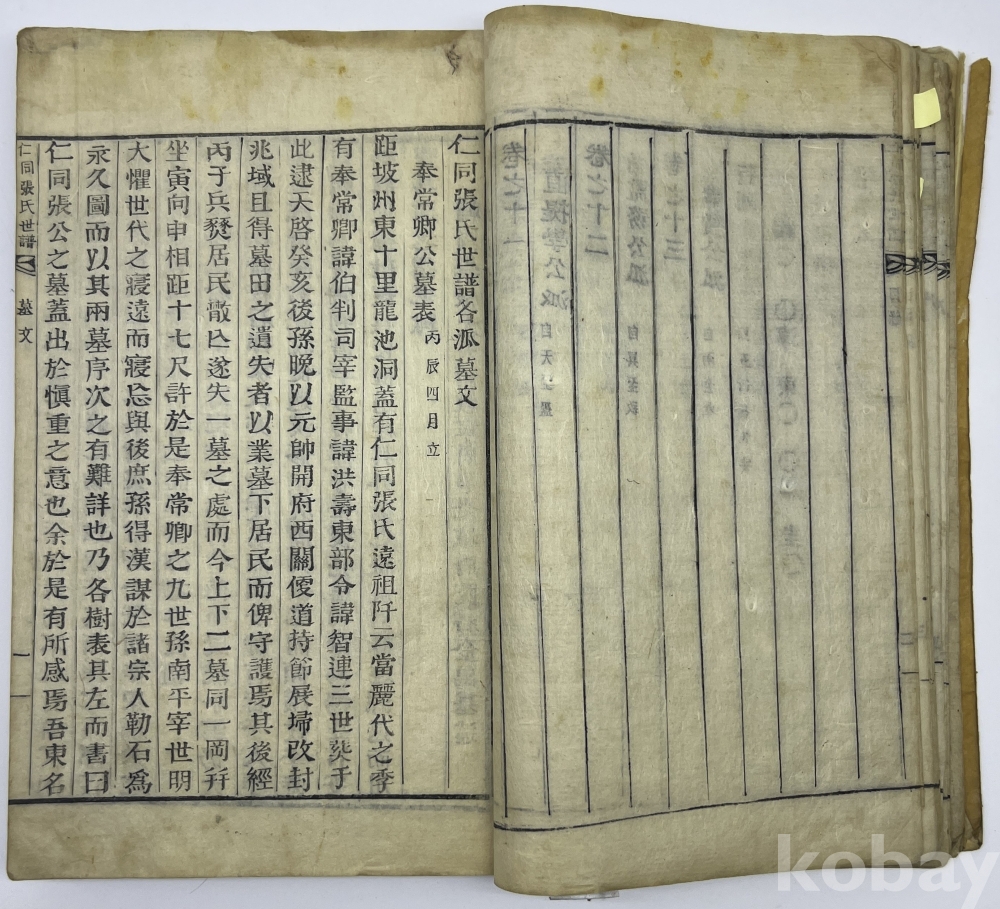 仁同張氏世譜各派墓文
奉常卿公墓表 丙辰四月立
距坡州東十里龍池洞蓋有仁同張氏遠祖阡云當麗代之季
有奉常卿諱伯判司宰監事諱洪壽東部令諱智連三世葬于
此逮天啓癸亥後孫晩以元帥開府西關便道持節展埽改封
兆域且得墓田之遺失者以業墓下居民而俾守護焉其後經
丙子兵燹居民散亡遂失一墓之處而今上下二墓同一岡幷
坐寅向申相距十七尺許於是奉常卿之九世孫南平宰世明
大懼世代之寢遠而寢忘與後庶孫得漢謀於諸宗人勒石爲
永久圖而以其兩墓序次之有難詳也乃各樹表其左而書曰
仁同張公之墓蓋出於愼重之意也余於是有所感焉吾東名
仁同張氏世譜 墓文 一
kobay